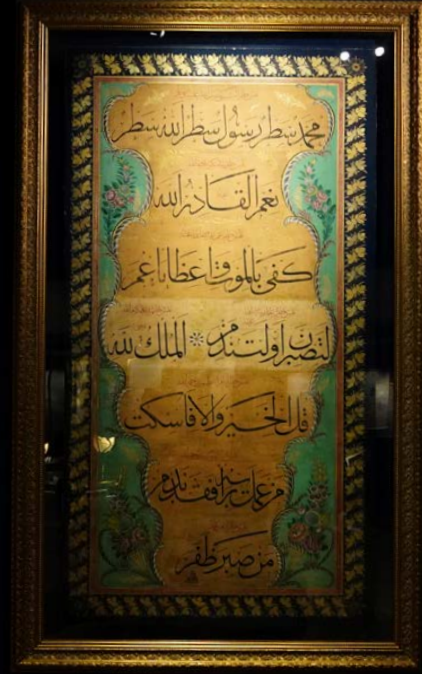 محمد سطر رسول سطر الله سطر
نعم القادر الله
كفى بالموت واعظا يا عمر
لتصبرن او لتندمن * الملك لله
قل الخير والا فاسكت
من عمل برأيه فقد ندم
من صبر ظفر